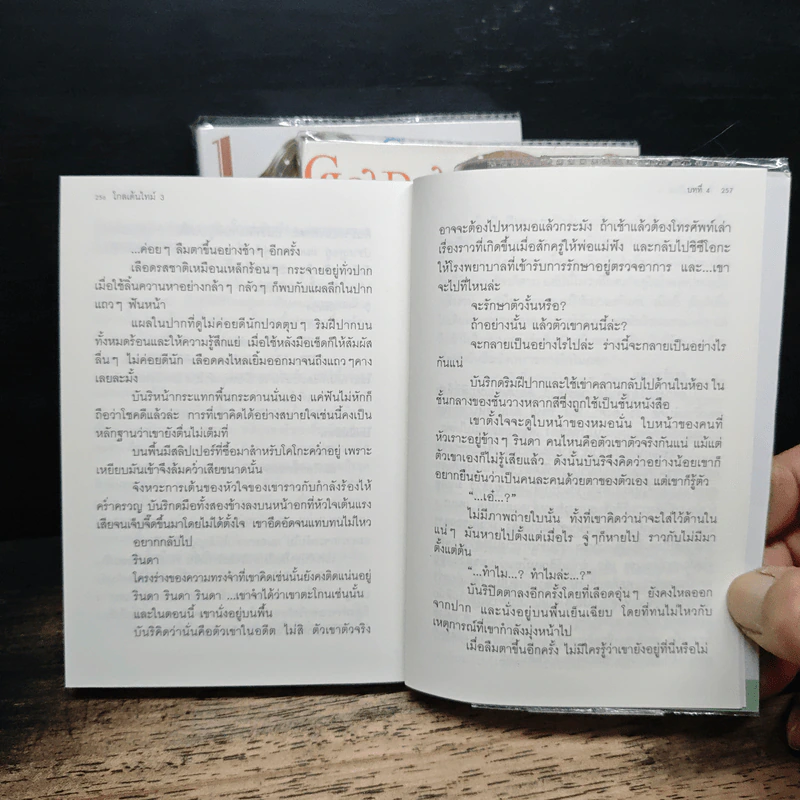 256 โกลเด้นไทม์ 3
...ค่อยๆ ลืมตาขึ้นอย่างช้าๆ อีกครั้ง
เลือดรสชาติเหมือนเหล็กร้อนๆ กระจายอยู่ทั่วปาก
เมื่อใช้ลิ้นควานหาอย่างกล้าๆ กลัวๆ ก็พบกับแผลลึกในปาก
แถวๆ ฟันหน้า
แผลในปากที่ดูไม่ค่อยดีนักปวดตุบๆ ริมฝีปากบน
ทั้งหมดร้อนและให้ความรู้สึกแย่ เมื่อใช้หลังมือเช็ดก็ให้สัมผัส
ลื่นๆ ไม่ค่อยดีนัก เลือดคงไหลเยิ้มออกมาจนถึงแถวๆ คาง
เลยละมั้ง
บันริหน้ากระแทกพื้นกระดานนั่นเอง แต่ฟันไม่หักก็
ถือว่าโชคดีแล้วล่ะ การที่เขาคิดได้อย่างสบายใจเช่นนี้คงเป็น
หลักฐานว่าเขายังตื่นไม่เต็มที่
บนพื้นมีสลิปเปอร์ที่ซื้อมาสำหรับโคโกะคว่ำอยู่ เพราะ
เหยียบมันเข้าจึงล้มคว่ำเสียขนาดนั้น
จังหวะการเต้นของหัวใจของเขาราวกับกำลังร้องไห้
คร่ำครวญ บันริกดมือทั้งสองข้างลงบนหน้าอกที่หัวใจเต้นแรง
เสียจนเจ็บจี๊ดขึ้นมาโดยไม่ได้ตั้งใจ เขาอึดอัดจนแทบทนไม่ไหว
อยากกลับไป
รินดา
โครงร่างของความทรงจำที่เขาคิดเช่นนั้นยังคงติดแน่นอยู่
รินดา รินดา รินดา ...เขาจำได้ว่าเขาตะโกนเช่นนั้น
และในตอนนี้ เขานั่งอยู่บนพื้น
บันริคิดว่านั่นคือตัวเขาในอดีต ไม่สิ ตัวเขาตัวจริง
บทที่ 4 257
อาจจะต้องไปหาหมอแล้วกระมัง ถ้าเช้าแล้วต้องโทรศัพท์เล่า
เรื่องราวที่เกิดขึ้นเมื่อสักครู่ให้พ่อแม่ฟัง และกลับไปชิซึโอกะ
ให้โรงพยาบาลที่เข้ารับการรักษาอยู่ตรวจอาการ และ...เขา
จะไปที่ไหนล่ะ
จะรักษาตัวงั้นหรือ?
ถ้าอย่างนั้น แล้วตัวเขาคนนี้ล่ะ?
จะกลายเป็นอย่างไรไปล่ะ ร่างนี้จะกลายเป็นอย่างไร
กันแน่
บันริกดริมฝีปากและใช้เข่าคลานกลับไปด้านในห้อง ใน
ชั้นกลางของชั้นวางหลากสีซึ่งถูกใช้เป็นชั้นหนังสือ
เขาตั้งใจจะดูใบหน้าของหมอนั่น ใบหน้าของคนที่
หัวเราะอยู่ข้างๆ รินดา คนไหนคือตัวเขาตัวจริงกันแน่ แม้แต่
ตัวเขาเองก็ไม่รู้เสียแล้ว ดังนั้นบันริจึงคิดว่าอย่างน้อยเขาก็
อยากยืนยันว่าเป็นคนละคนด้วยตาของตัวเอง แต่เขาก็รู้ตัว
“...เอ๋...?”
ไม่มีภาพถ่ายใบนั้น ทั้งที่เขาคิดว่าน่าจะใส่ไว้ด้านใน
แน่ๆ มันหายไปตั้งแต่เมื่อไร จู่ๆ ก็หายไป ราวกับไม่มีมา
ตั้งแต่ต้น
“...ทำไม...? ทำไมล่ะ...?”
บันริปิดตาลงอีกครั้งโดยที่เลือดอุ่นๆ ยังคงไหลออก
จากปาก และนั่งอยู่บนพื้นเย็นเฉียบ โดยที่ทนไม่ไหวกับ
เหตุการณ์ที่เขากำลังมุ่งหน้าไป
เมื่อลืมตาขึ้นอีกครั้ง ไม่มีใครรู้ว่าเขายังอยู่ที่นี่หรือไม่